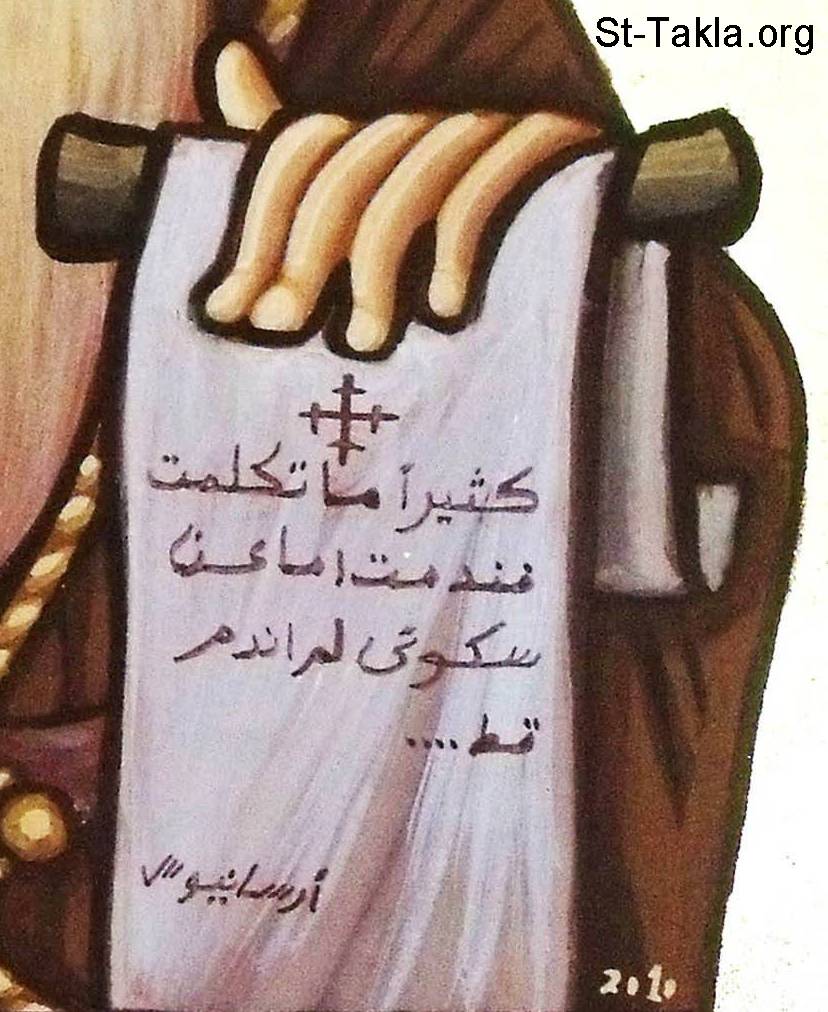 St-Takla.org
كثيراً ما تكلمت
فندمت اما عن
سكوتى لم اندم
قط ....
أرسانيوس
2010